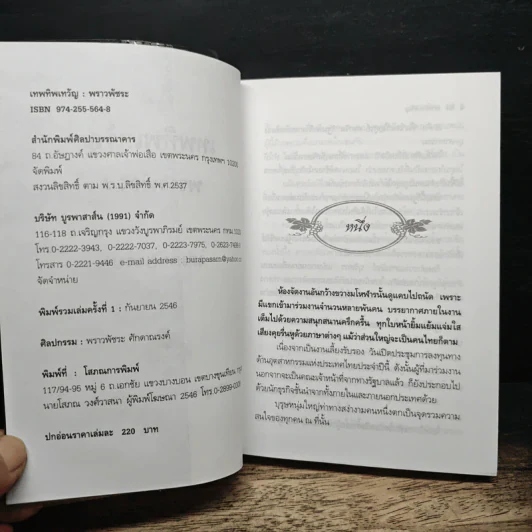 เทพทิพเทวัญ : พราวพัชระ
ISBN 974-255-564-8
สำนักพิมพ์ศิลปาบรรณาคาร
84 ถ.อัษฎางค์ แขวงศาลเจ้าพ่อเสือ เขตพระนคร กรุงเทพฯ 10200
จัดพิมพ์
สงวนลิขสิทธิ์ ตาม พ.ร.บ.ลิขสิทธิ์ พ.ศ.2537
บริษัท บูรพาสาส์น (1991) จำกัด
116-118 ถ.เจริญกรุง แขวงวังบูรพาภิรมย์ เขตพระนคร กทม.
โทร.0-2222-3943, 0-2222-7037, 0-2222-7975,
โทรสาร 0-2221-9446 e-mail address :
จัดจำหน่าย
พิมพ์รวมเล่มครั้งที่ 1 : กันยายน 2546
ศิลปกรรม : พราวพัชระ ศักดาณรงค์
พิมพ์ที่ : โสภณการพิมพ์
117/94-96 หมู่ 6 ถ.เอกชัย แขวงบางบอน เขตบางขุนเทียน
นายโสภณ วงศ์วาสนา ผู้พิมพ์โฆษณา 2546
ปกอ่อนราคาเล่มละ 220 บาท
หนึ่ง
ห้องจัดงานอันกว้างขวางมโหฬารนั้นดูแคบไปถนัด เพราะ
มีแขกเข้ามาร่วมงานจำนวนหลายพันคน บรรยากาศภายในงาน
เต็มไปด้วยความสนุกสนานครึกครื้น ทุกใบหน้ายิ้มแย้มแจ่มใส
เสียงคุยรื่นหูด้วยภาษาต่างๆ แม้ว่าส่วนใหญ่จะเป็นคนไทยก็ตาม
เนื่องจากเป็นงานเลี้ยงรับรอง วันเปิดประชุมการลงทุนทาง
ด้านอุตสาหกรรมแห่งประเทศไทยประจำปีนี้ ดังนั้นผู้ที่มาร่วมงาน
นอกจากจะเป็นคณะเจ้าหน้าที่จากทางรัฐบาลแล้ว ก็ยังประกอบไป
ด้วยนักธุรกิจชั้นนำจากทั้งภายในและภายนอกประเทศด้วย
บุรุษหนุ่มใหญ่ท่าทางสง่างามคนหนึ่งตกเป็นจุดรวมความ
สนใจของทุกคน ณ ที่นั้น